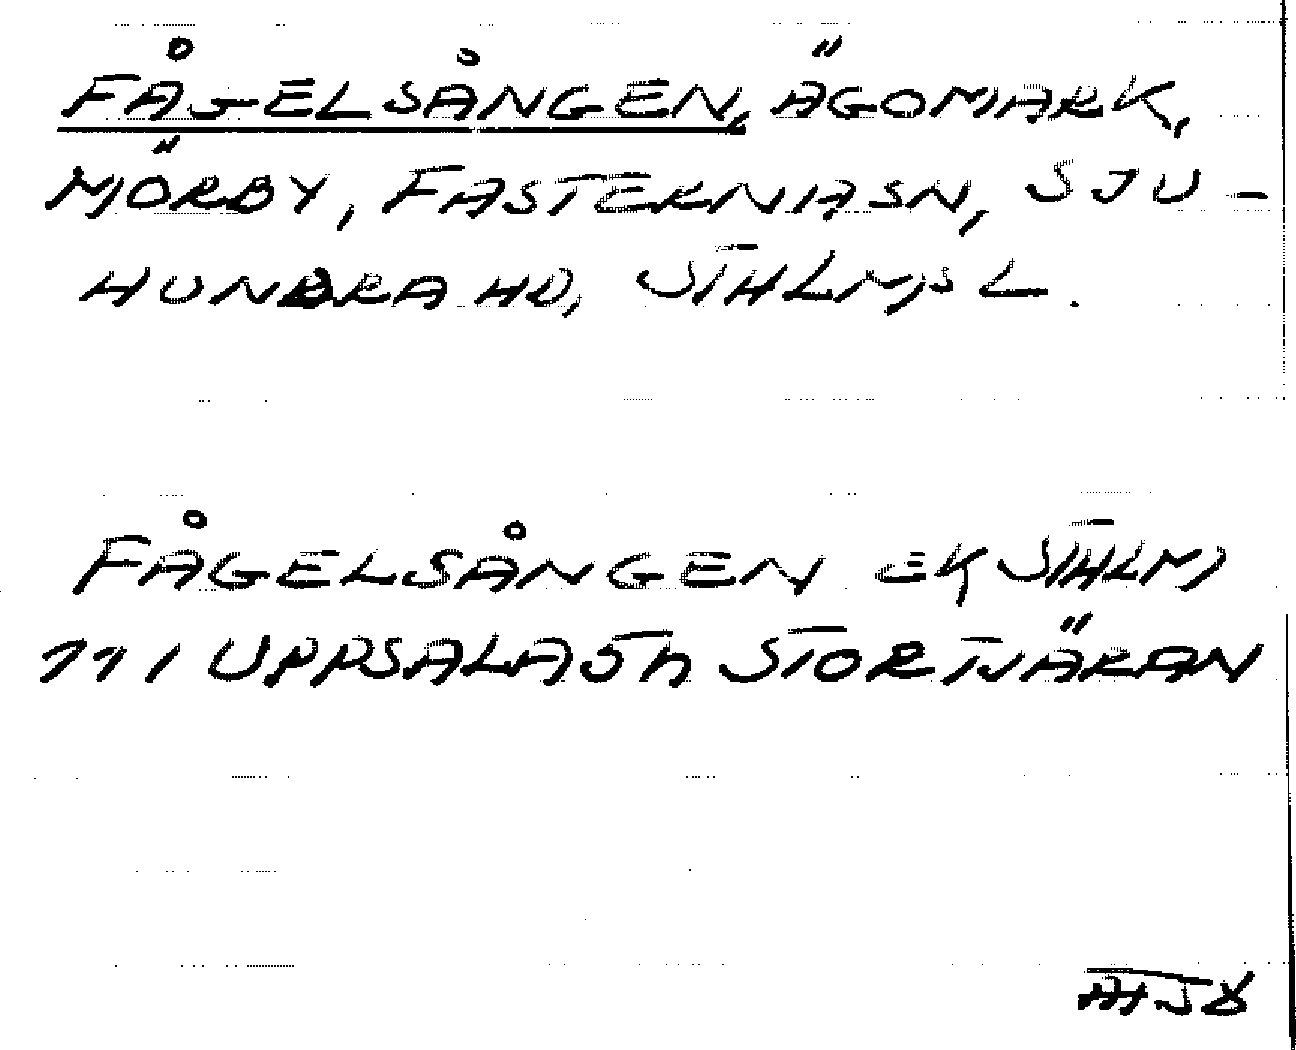 FÅGELSÅNGEN, ÄGOMARK,
MÖRBY, FASTERNA SN, SJU-
HUNDRA HD, STHLMS L.
FÅGELSÅNGEN EK STHLM
111 UPPSALA 5h STORTJÄRAN